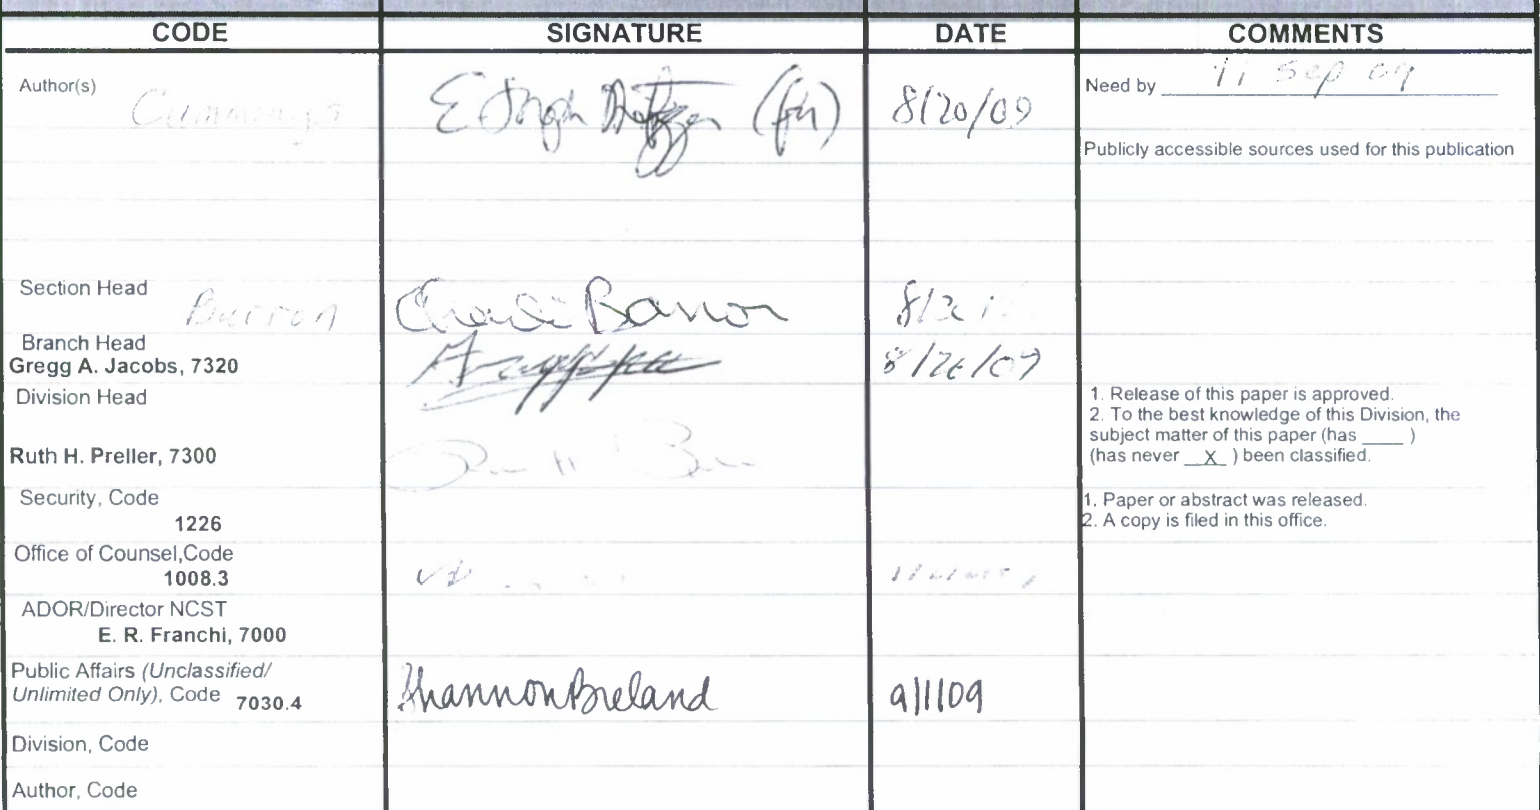 CODE SIGNATURE DATE COMMENTS
Author(s)
Cummings (for) 8/20/09
Need by 11 Sep 09
Publicly accessible sources used for this publication
Section Head
Barron Charlie Barron
Branch Head
Gregg A. Jacobs, 7320 8/26/09
Division Head
Ruth H. Preller, 7300
1. Release of this paper is approved.
2. To the best knowledge of this Division, the
subject matter of this paper (has ____ )
(has never __X_ ) been classified.
Security, Code
1226
1. Paper or abstract was released.
2. A copy is filed in this office.
Office of Counsel,Code
1008.3
ADOR/Director NCST
E. R. Franchi, 7000
Public Affairs (Unclassified/
Unlimited Only), Code 7030.4 Shannon Breland 9/1/09
Division, Code
Author, Code